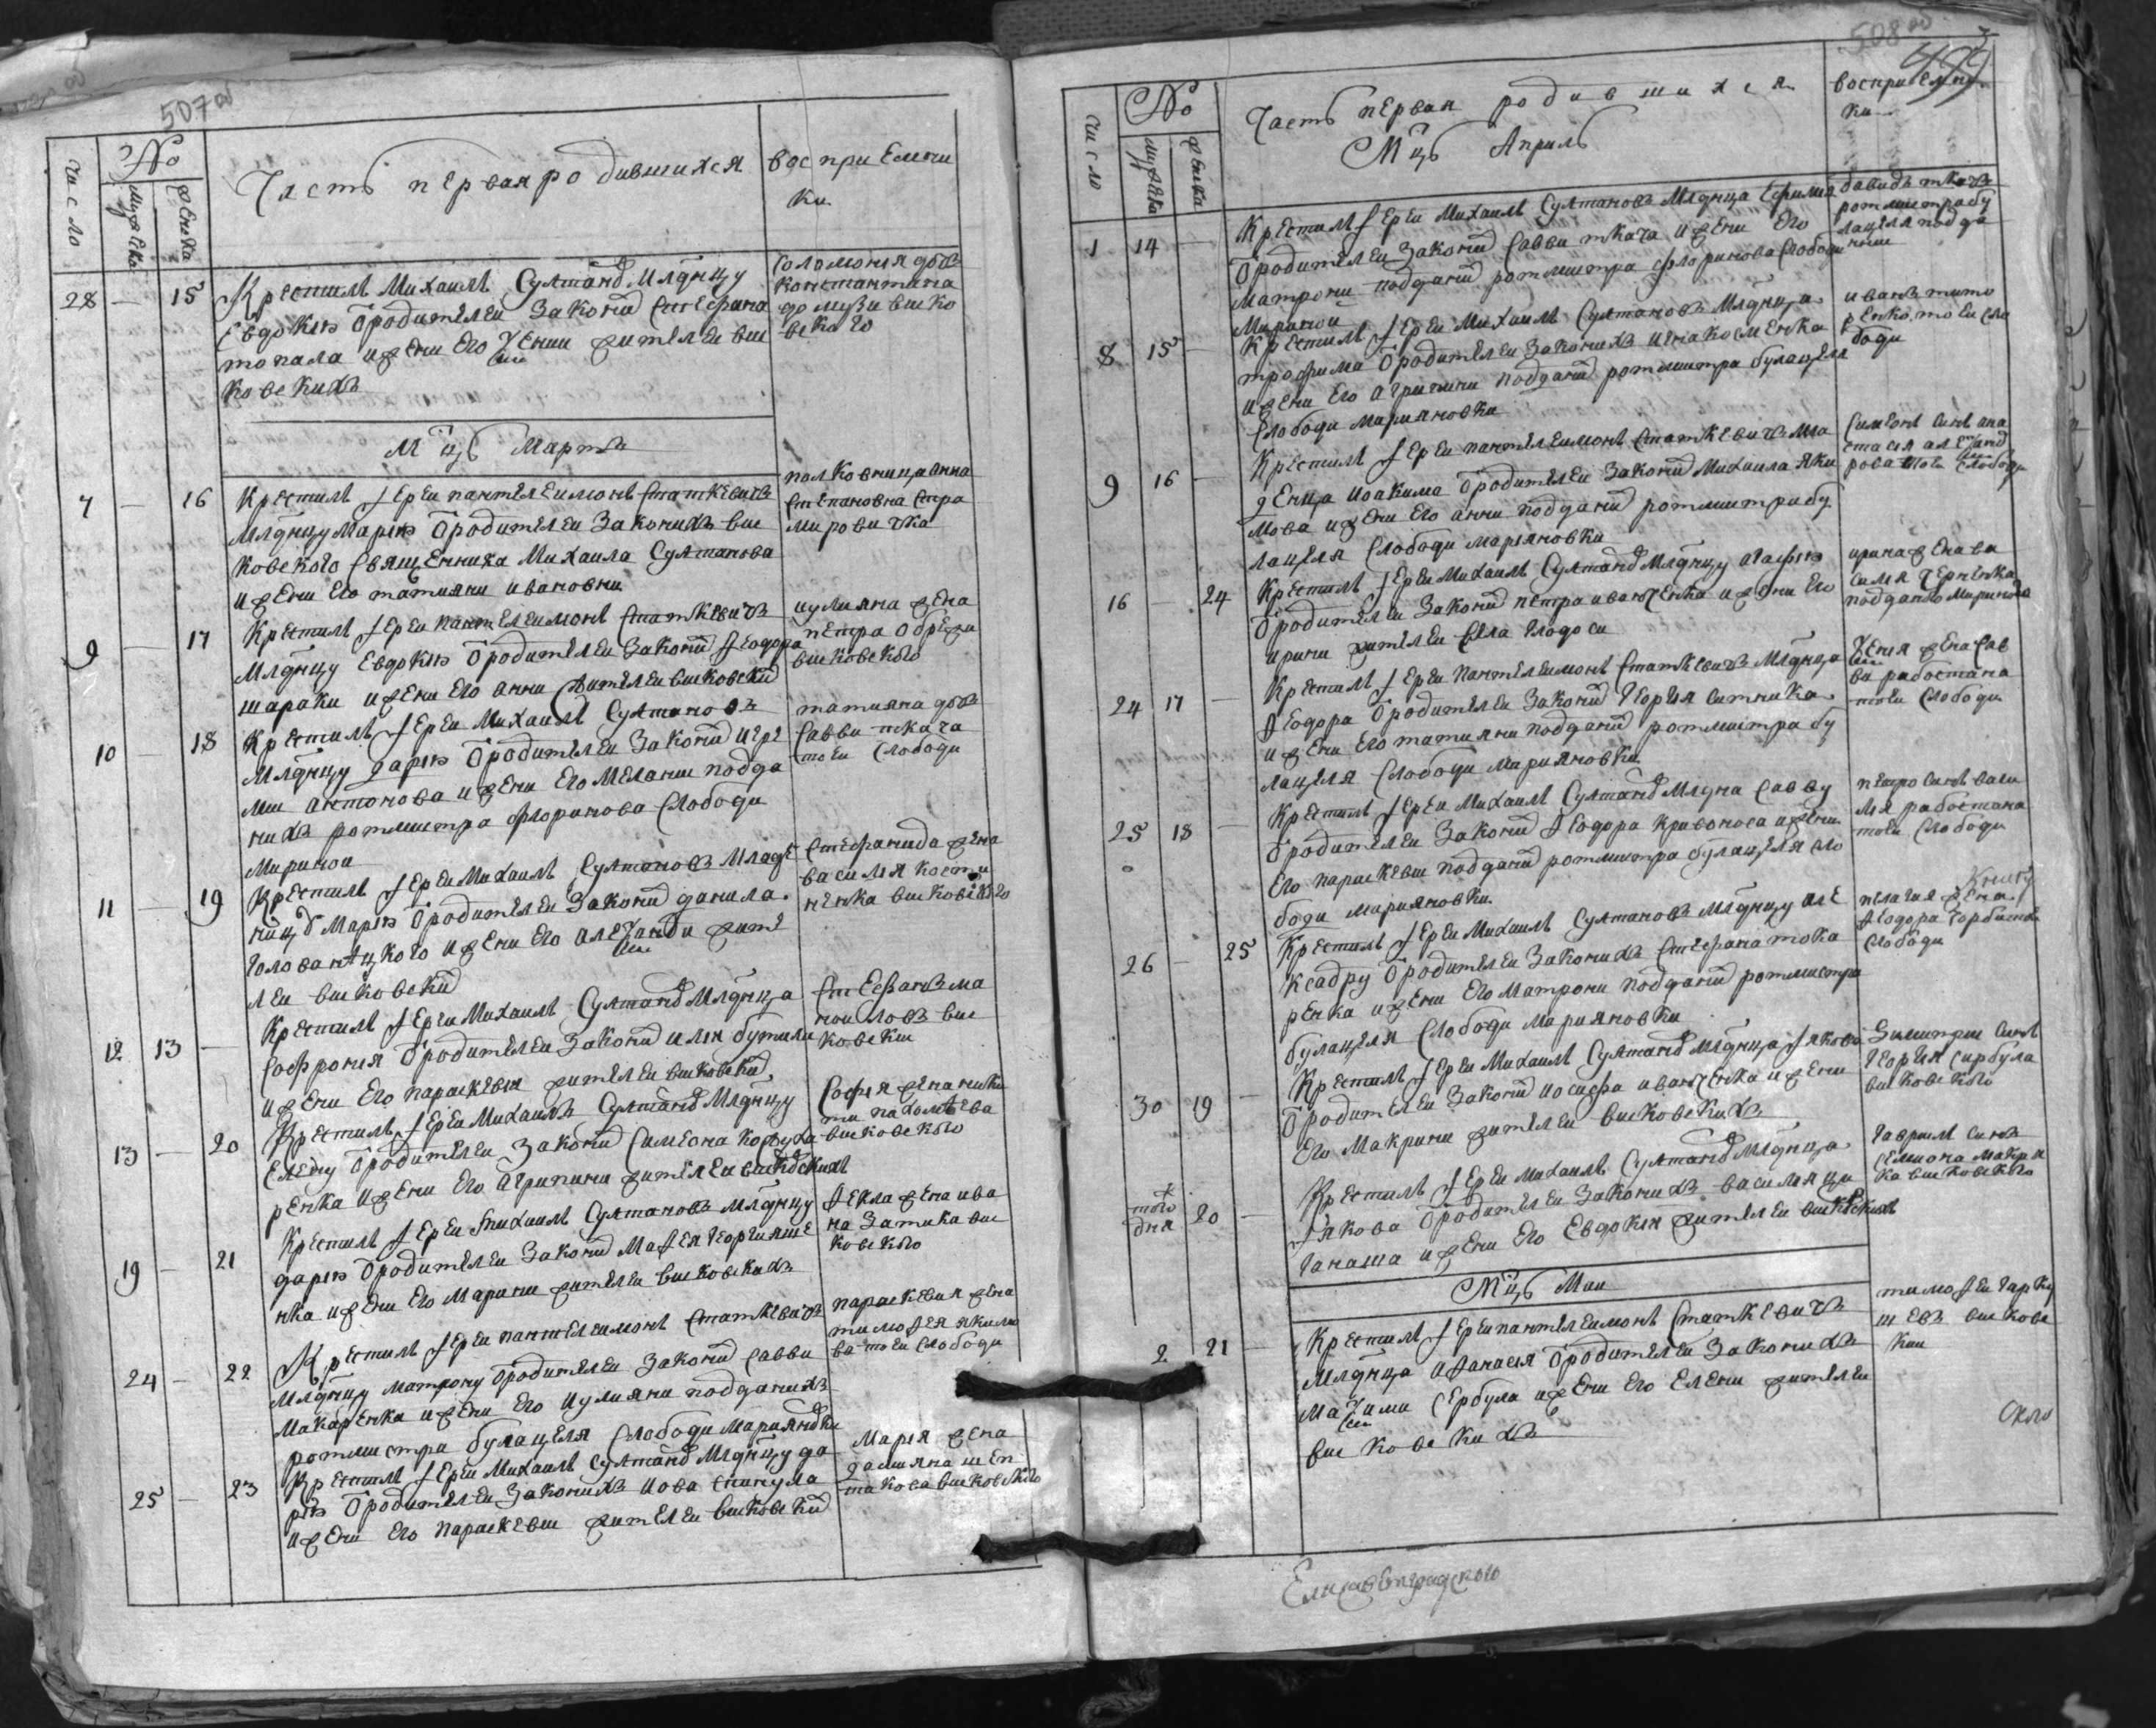 507 об
№
число
мужеска
женска
Часть первая родившихся
восприемни
ки
28 — 15
Крестилъ Михаилъ Султановъ младенцу
Евдокию от родителей законнихъ Стефана
топала и жени его Ксении жителей вис
ковскихъ
Соломония дочь
константина
вилко
вского
Мцъ Мартъ
7 — 16
Крестилъ иерей пантелеимонъ Статкевичъ
млднцу Марию от родителей законихъ вис
ковского священника Михаила Султанова
и жени его татияни ивановни
полковница анна
степановна стра
мировичка
9 — 17
Крестилъ иерей пантелеимонъ Статкевичъ
млднцу Евдокию от родителей законихъ Феодора
шараки и жени его анни жителей висковскихъ
иулиана жена
петра
висковского
10 — 18
Крестилъ иерей Михаилъ Султановъ
млднцу дарию от родителей законихъ иере
мии антонова и жени его Мелании подда
нихъ ротмистра флоринова слободи
Мириной
татияна дочь
савви ткача
тоей слободи
11 — 19
Крестилъ иерей Михаилъ Султановъ младе
ницу Марию от родителей законихъ данила
головатцкого и жени его александри жите
лей висковскихъ
Стефанида жена
василия
ненка висковского
12 13 —
Крестилъ иерей Михаилъ Султановъ млднца
софрония от родителей законихъ илии бутили
и жени его параскевии жителей висковскихъ
Стефанъ ма
ноиловъ вис
ковский
13 — 20
Крестилъ иерей Михаилъ Султановъ млднцу
Елену от родителей законихъ Симеона
ренка и жени его агрипини жителей висковскихъ
София жена ники
ти пахомьева
висковского
19 — 21
Крестилъ иерей Михаилъ Султановъ млднцу
дарию от родителей законихъ Мафея георгияше
нка и жени его Марини жителей висковскихъ
Фекла жена ива
на затика вис
ковского
24 — 22
Крестилъ иерей пантелеимонъ Статкевичъ
млднцу матрону от родителей законихъ савви
макаренка и жени его иулияни поданихъ
ротмистра булацеля слободи Марияновки
параскевия жена
тимофея якимо
ва тоей слободи
25 — 23
Крестилъ иерей Михаилъ Султановъ млднцу да
рию от родителей законихъ иова
и жени его параскевии жителей висковскихъ
Мария жена
дамияна шеп
такова висковского
508 об
499
№
число
мужеска
женска
Часть первая родившихся
Мцъ Априль
восприемни
ки
1 14 —
Крестилъ иерей Михаилъ Султановъ млднца Ефимия
от родителей законихъ савви ткача и жени его
матрони поданихъ ротмистра флоринова слободи
Мириной
давидъ ткачъ
ротмистра бу
лацеля подда
нии
8 15 —
Крестилъ иерей Михаилъ Султановъ млднца
трофима от родителей законихъ
и жени его агрипини поданихъ ротмистра булацеля
слободи Марияновки
иванъ тимо
ренко тоей сло
боди
9 16 —
Крестилъ иерей пантелеимонъ Статкевичъ мла
денца иоакима от родителей законихъ Михаила яки
мова и жени его анни поданихъ ротмистра бу
лацеля слободи марияновки
Симеонъ синъ ана
стасия александ
рова тоей слободи
16 — 24
Крестилъ иерей Михаилъ Султановъ млднцу агафию
от родителей законихъ петра иванченка и жени его
ирини жителей села глодоси
ирина жена ва
силия черненка
поданого Миринова
24 17 —
Крестилъ иерей пантелеимонъ Статкевичъ млднца
Феодора от родителей законихъ георгия ситника
и жени его татияни поданихъ ротмистра бу
лацеля слободи марияновки
Ксения жена сав
ви работана
тоей слободи
25 18 —
Крестилъ иерей Михаилъ Султановъ млднца савву
от родителей законихъ Феодора кривоноса и жени
его параскевии поданихъ ротмистра булацеля сло
боди марияновки
петро синъ васи
лия работана
тоей слободи
26 — 25
Крестилъ иерей Михаилъ Султановъ млднцу але
ксадру от родителей законихъ стефана тока
ренка и жени его Матрони поданихъ ротмистра
булацеля слободи марияновки
пелагия жена
Феодора
слободи
30 19 —
Крестилъ иерей Михаилъ Султановъ млднца иякова
от родителей законихъ иосифа иванченка и жени
его Макрини жителей висковскихъ
Зимитрии синъ
георгия сирбула
висковского
того дня 20 —
Крестилъ иерей михаилъ Султановъ млднца
иякова от родителей законихъ василия ци
ганаша и жени его Евдокии жителей висковскихъ
гаврилъ синъ
семиона макри
ка висковского
Мцъ Маи
2 21 —
Крестилъ иерей пантелеимонъ Статкевичъ
млднца афанасия от родителей законихъ
Максима сербула и жени его Елени жителей
висковскихъ
тимофей гарку
шевъ висков
кии
Елисаветградского